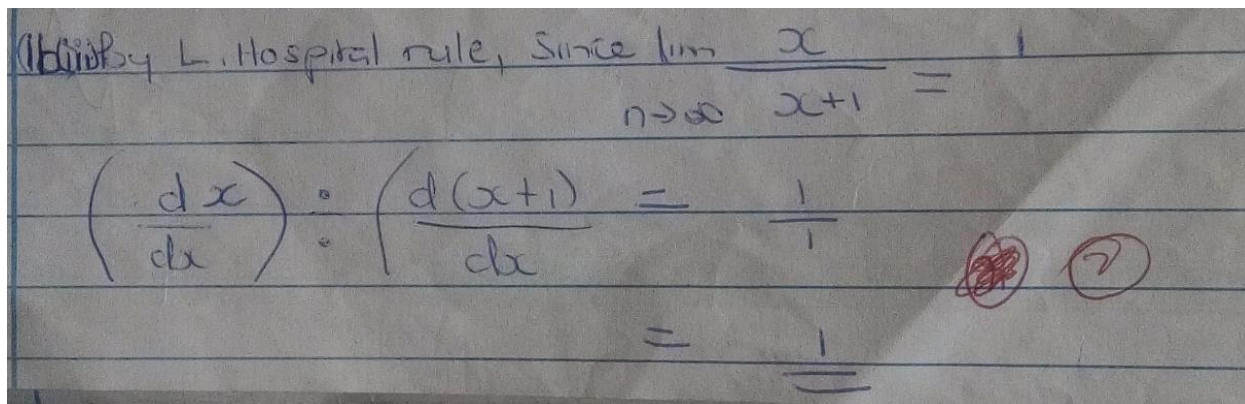 by L. Hospital rule, Since lim x/(x+1) = 1
n→∞
(dx/dx) ÷ (d(x+1)/dx = 1/1
= 1